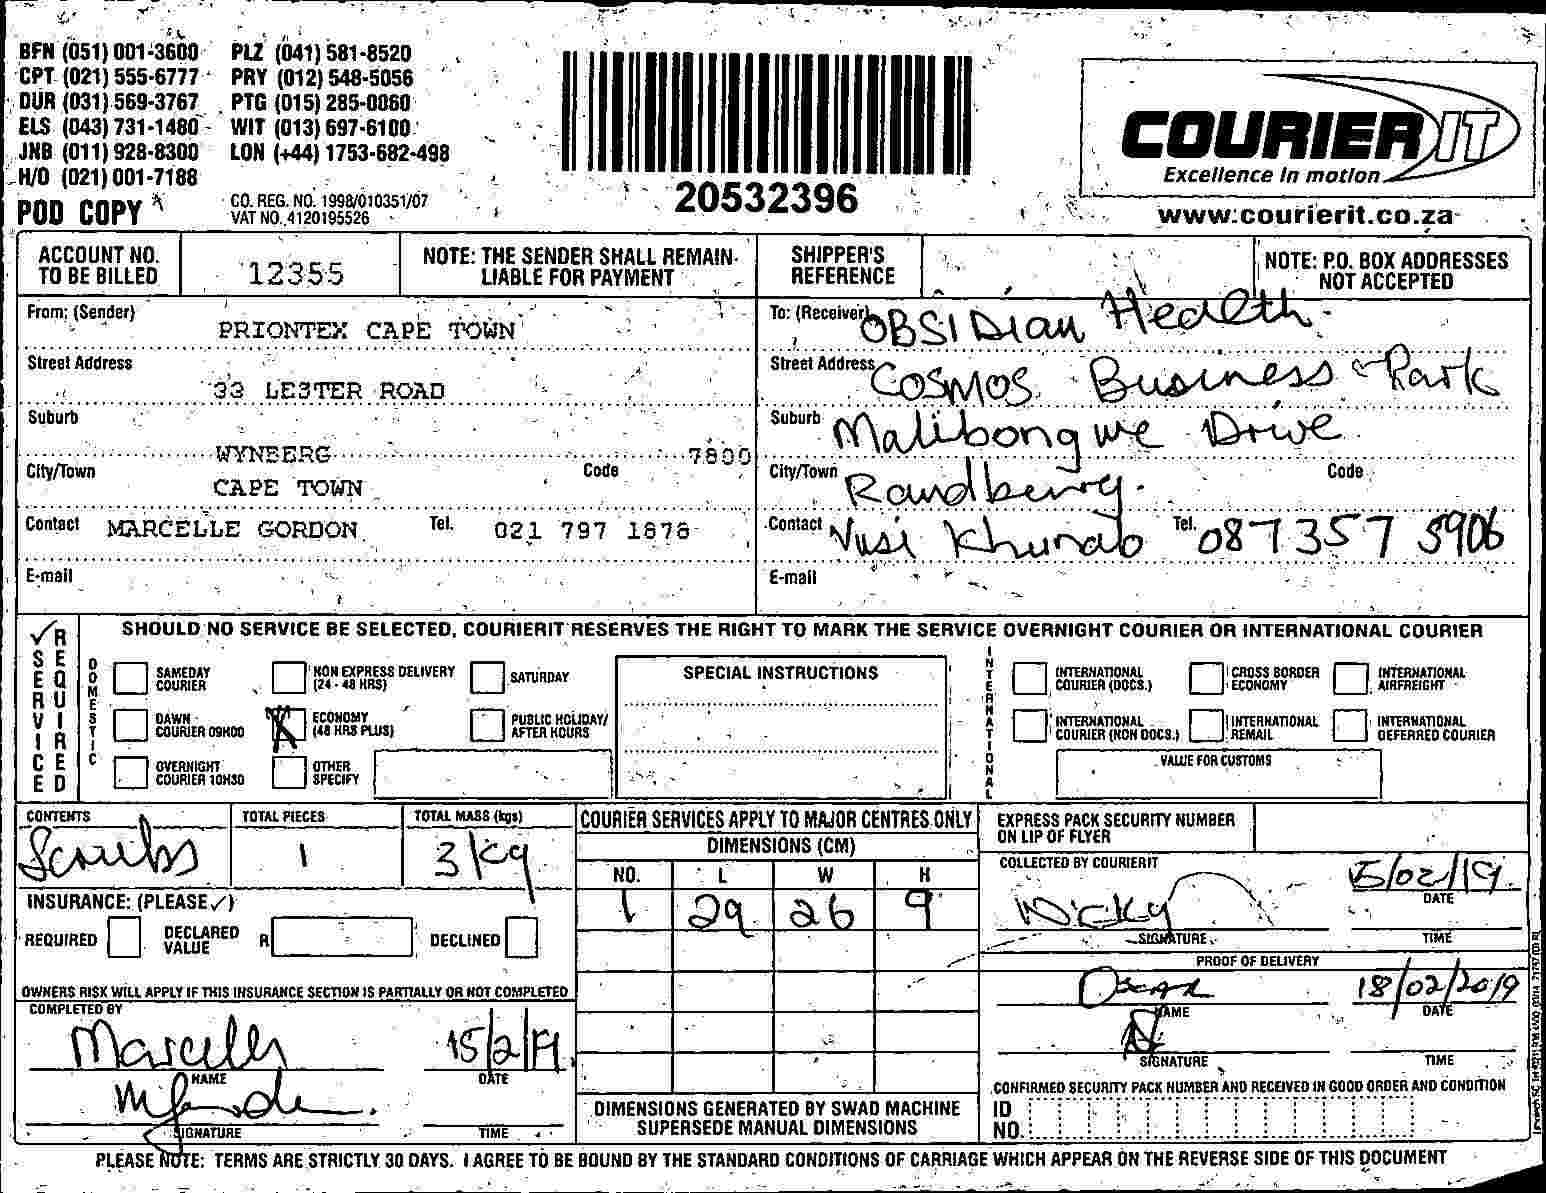 BFN (051) 001-3600 PLZ (041) 581-8520
CPT (021) 555-6777 PRY (012) 548-5056
DUR (031) 569-3767 PTG (015) 285-0060
ELS (043) 731-1480 WIT (013) 697-6100
JNB (011) 928-8300 LON (+44) 1753-682-498
H/O (021) 001-7188
POD COPY
CO. REG. NO. 1998/010351/07
VAT NO. 4120195526
20532396
COURIER IT
Excellence in motion
www.courierit.co.za
ACCOUNT NO. TO BE BILLED 12355
NOTE: THE SENDER SHALL REMAIN LIABLE FOR PAYMENT
SHIPPER'S REFERENCE
NOTE: P.O. BOX ADDRESSES NOT ACCEPTED
From: (Sender) PRIONTEX CAPE TOWN
Street Address 33 LESTER ROAD
Suburb WYNBERG
City/Town CAPE TOWN Code 7800
Contact MARCELLE GORDON Tel. 021 797 1878
E-mail
To: (Receiver) OBSIDian Health
Street Address COSMOS Business Park
Suburb Malibongwe Drive
City/Town Randberg. Code
Contact Vusi Tel. 087 357 5906
E-mail
✓ SERVICE REQUIRED
SHOULD NO SERVICE BE SELECTED, COURIERIT RESERVES THE RIGHT TO MARK THE SERVICE OVERNIGHT COURIER OR INTERNATIONAL COURIER
DOMESTIC
SAMEDAY COURIER
NON EXPRESS DELIVERY (24 - 48 HRS)
SATURDAY
DAWN COURIER 09H00
ECONOMY (48 HRS PLUS)
PUBLIC HOLIDAY/ AFTER HOURS
OVERNIGHT COURIER 10H30
OTHER SPECIFY
SPECIAL INSTRUCTIONS
INTERNATIONAL
INTERNATIONAL COURIER (DOCS.)
CROSS BORDER ECONOMY
INTERNATIONAL AIRFREIGHT
INTERNATIONAL COURIER (NON DOCS.)
INTERNATIONAL REMAIL
INTERNATIONAL DEFERRED COURIER
VALUE FOR CUSTOMS
CONTENTS Scrubs
TOTAL PIECES 1
TOTAL MASS (kgs) 3kg
INSURANCE: (PLEASE ✓)
REQUIRED DECLARED VALUE R DECLINED
OWNERS RISK WILL APPLY IF THIS INSURANCE SECTION IS PARTIALLY OR NOT COMPLETED
COMPLETED BY
Marcelle 15/2/19
NAME DATE
SIGNATURE TIME
COURIER SERVICES APPLY TO MAJOR CENTRES ONLY
DIMENSIONS (CM)
NO. L W H
1 29 26 9
DIMENSIONS GENERATED BY SWAD MACHINE SUPERSEDE MANUAL DIMENSIONS
EXPRESS PACK SECURITY NUMBER ON LIP OF FLYER
COLLECTED BY COURIERIT
Nicky 15/02/19
SIGNATURE DATE
TIME
PROOF OF DELIVERY
Oscar 18/02/2019
NAME DATE
SIGNATURE TIME
CONFIRMED SECURITY PACK NUMBER AND RECEIVED IN GOOD ORDER AND CONDITION
ID NO.
PLEASE NOTE: TERMS ARE STRICTLY 30 DAYS. I AGREE TO BE BOUND BY THE STANDARD CONDITIONS OF CARRIAGE WHICH APPEAR ON THE REVERSE SIDE OF THIS DOCUMENT